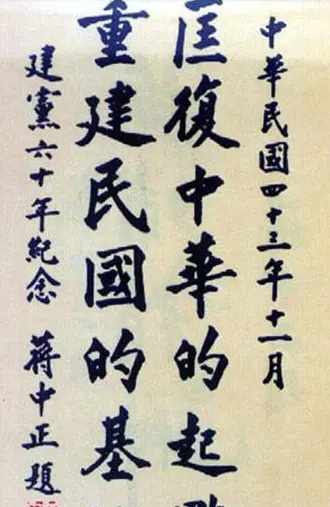 中華民國四十三年十一月
匡復中華的起
重建民國的基
建黨六十年紀念 蔣中正題